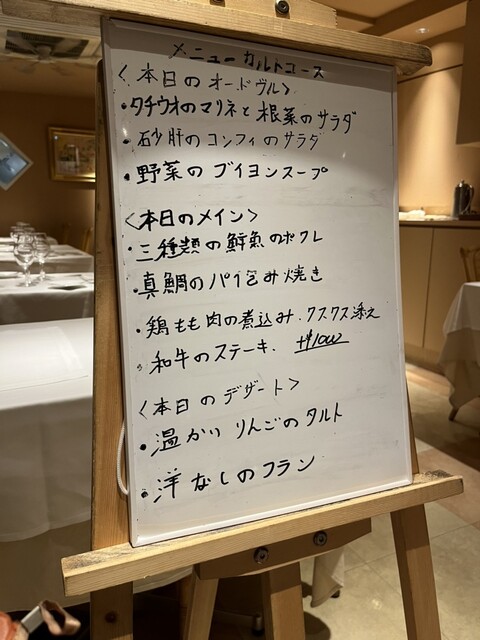 メニューカルトコース
〈本日のオードヴル〉
・タチウオのマリネと根菜のサラダ
・砂肝のコンフィのサラダ
・野菜のブイヨンスープ
〈本日のメイン〉
・三種類の鮮魚のポワレ
・真鯛のパイ包み焼き
・鶏もも肉の煮込み.クスクス添え
・和牛のステーキ. +¥1000
〈本日のデザート〉
・温かいりんごのタルト
・洋なしのフラン